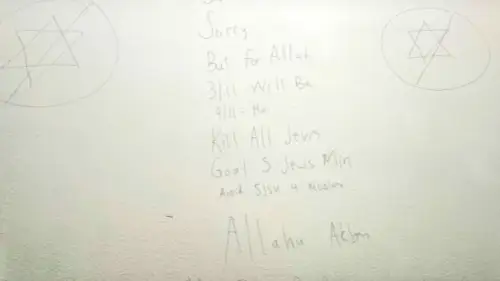 Sorry
But for Allah
3/11 Will Be
9/11
Kill All Jews
Goal 5 Jews Min
And
Allahu Akbar